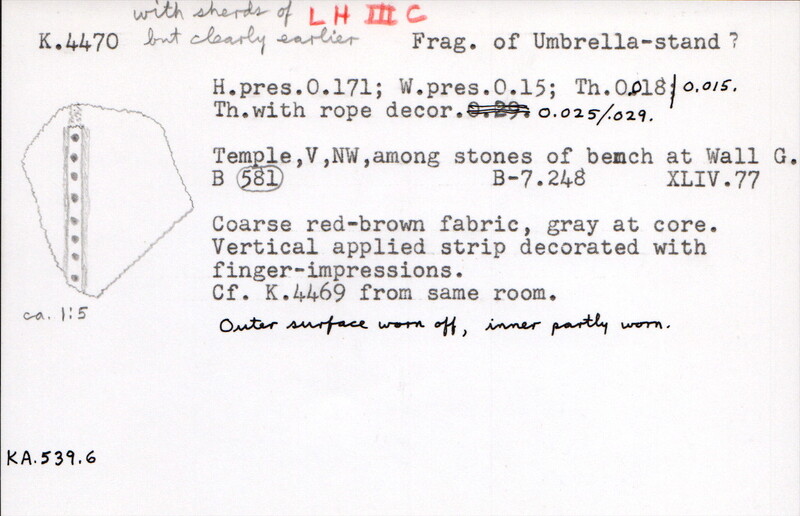 with sherds of LH III C
but clearly earlier
K.4470 Frag. of Umbrella-stand ?
H.pres.0.171; W.pres.0.15; Th.0.018; 0.015.
Th.with rope decor. 0.29. 0.025/.029.
Temple,V,NW,among stones of bench at Wall G.
B 581 B-7.248 XLIV.77
Coarse red-brown fabric, gray at core.
Vertical applied strip decorated with
finger-impressions.
Cf. K.4469 from same room.
ca. 1:5
Outer surface worn off, inner partly worn.
KA.539.6